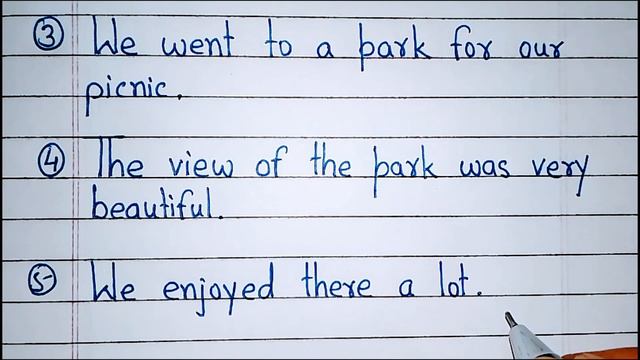 ③ We went to a park for our
picnic.
④ The view of the park was very
beautiful.
⑤ We enjoyed there a lot.